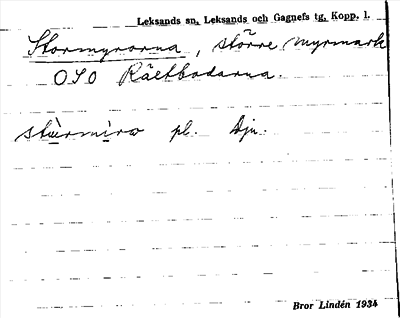 Leksands sn, Leksands och Gagnefs tg, Kopp. l.
Stormyrorna, större myrmark
OSO Rältbodarna.
stu̱rmi̱ro pl. Dju.
Bror Lindén 1934